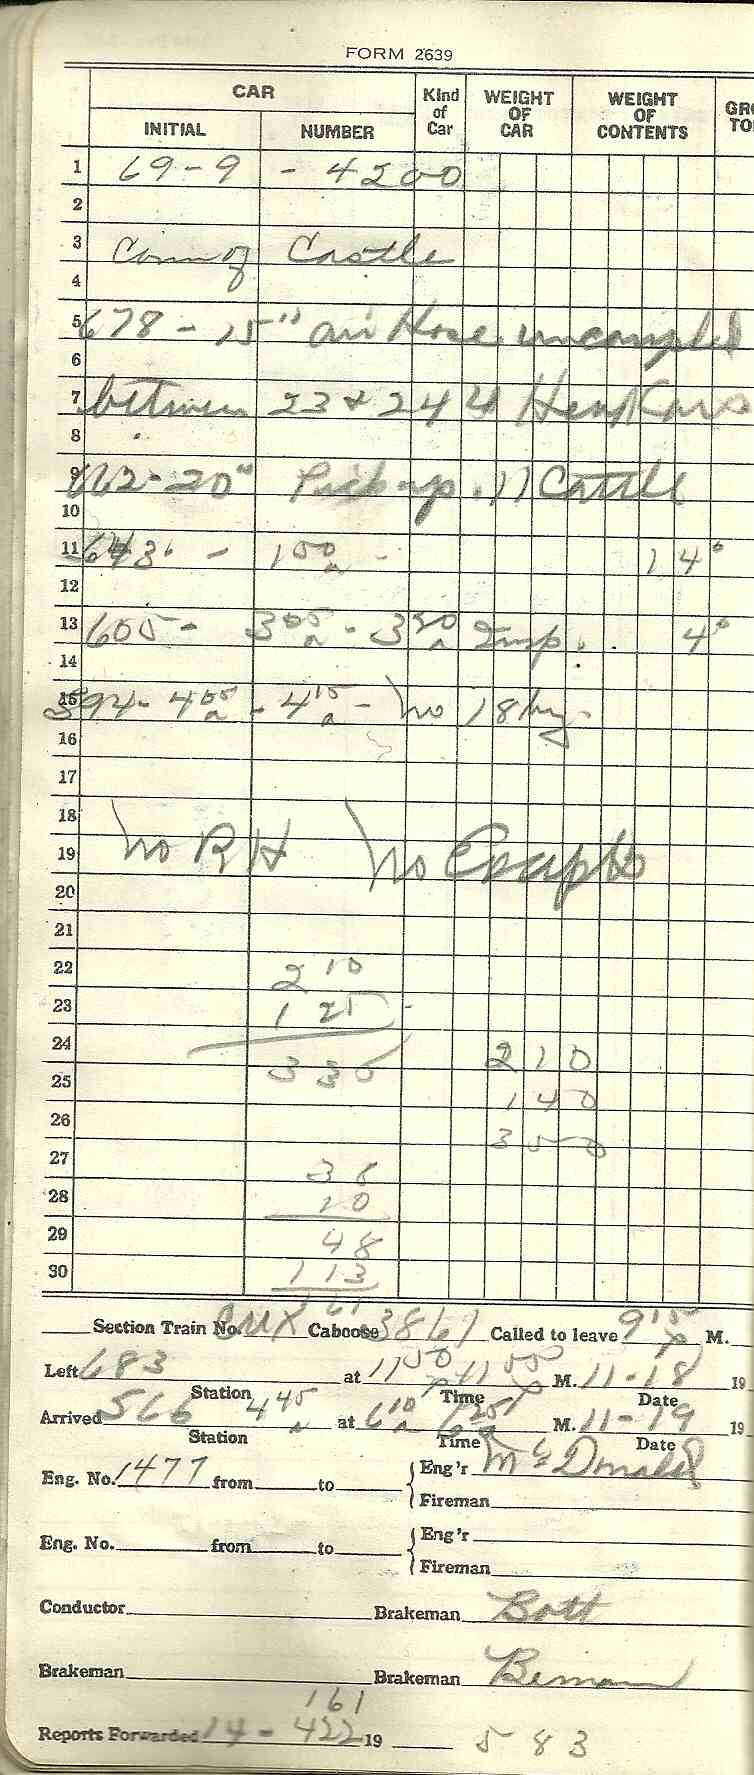 FORM 2639
CAR Kind of Car WEIGHT OF CAR WEIGHT OF CONTENTS
INITIAL NUMBER
1 69-9 - 4200
2
3 Castle
4
5 678 - 15" air Hose uncoupled
6
7 between 23 & 24
8
9 - 20" Pickup Cattle
10
11 643 - 1 50 a - 14°
12
13 605 - 3 05 a - 3 20 a Insp. 4°
14
15 594 - 4 05 a - 4 15 a - no
16
17
18
19 no R H no
20
21
22 2 10
23 1 25
24 210
25 335 140
26 350
27 38
28 10
29 48
30 113
161
Section Train No. Caboose 3861 Called to leave 9 15 p M.
Left 683 at 11 50 p 11 55 p M. 11-18 19
Station Time Date
Arrived 566 4 45 a at 6 10 a M. 11-19 19
Station Time Date
Eng. No. 1477 from to Eng'r McDonald
Fireman
Eng. No. from to Eng'r
Fireman
Conductor Brakeman Bott
Brakeman Brakeman
161
Reports Forwarded 14 - 422 19 583